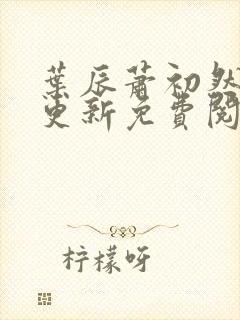 葉辰蕭初然
更新免費閱
柠檬呀